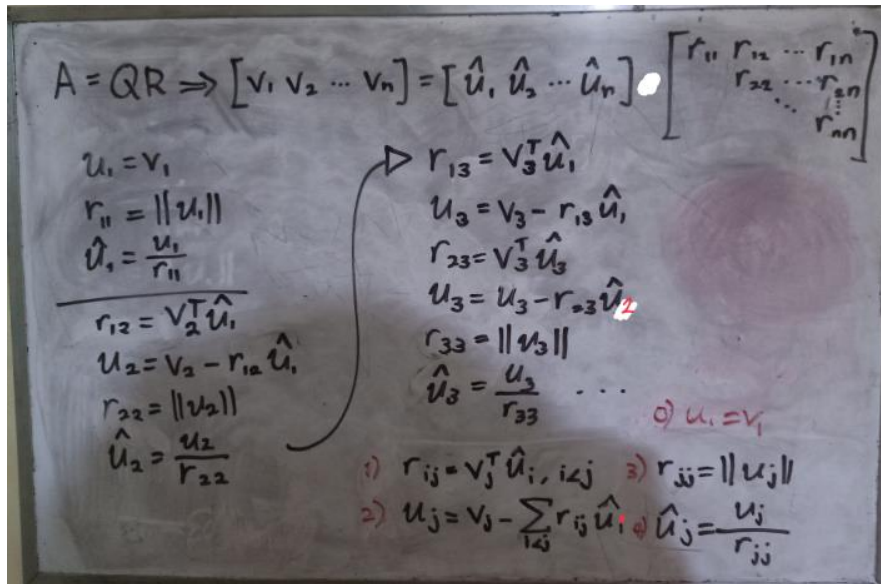 A = QR ⇒ [v₁ v₂ ⋯ vₙ] = [û₁ û₂ ⋯ ûₙ] · [r₁₁ r₁₂ ⋯ r₁ₙ
r₂₂ ⋯ r₂ₙ
⋱ ⋮
rₙₙ]
u₁ = v₁
r₁₁ = ||u₁||
û₁ = u₁/r₁₁
r₁₂ = v₂ᵀû₁
u₂ = v₂ - r₁₂û₁
r₂₂ = ||u₂||
û₂ = u₂/r₂₂
r₁₃ = v₃ᵀû₁
u₃ = v₃ - r₁₃û₁
r₂₃ = v₃ᵀû₃
u₃ = u₃ - r₂₃û₂
r₃₃ = ||u₃||
û₃ = u₃/r₃₃ ⋯
0) u₁ = v₁
1) rᵢⱼ = vⱼᵀûᵢ, i<j
2) uⱼ = vⱼ - ∑_{i<j} rᵢⱼûᵢ
3) rⱼⱼ = ||uⱼ||
4) ûⱼ = uⱼ/rⱼⱼ